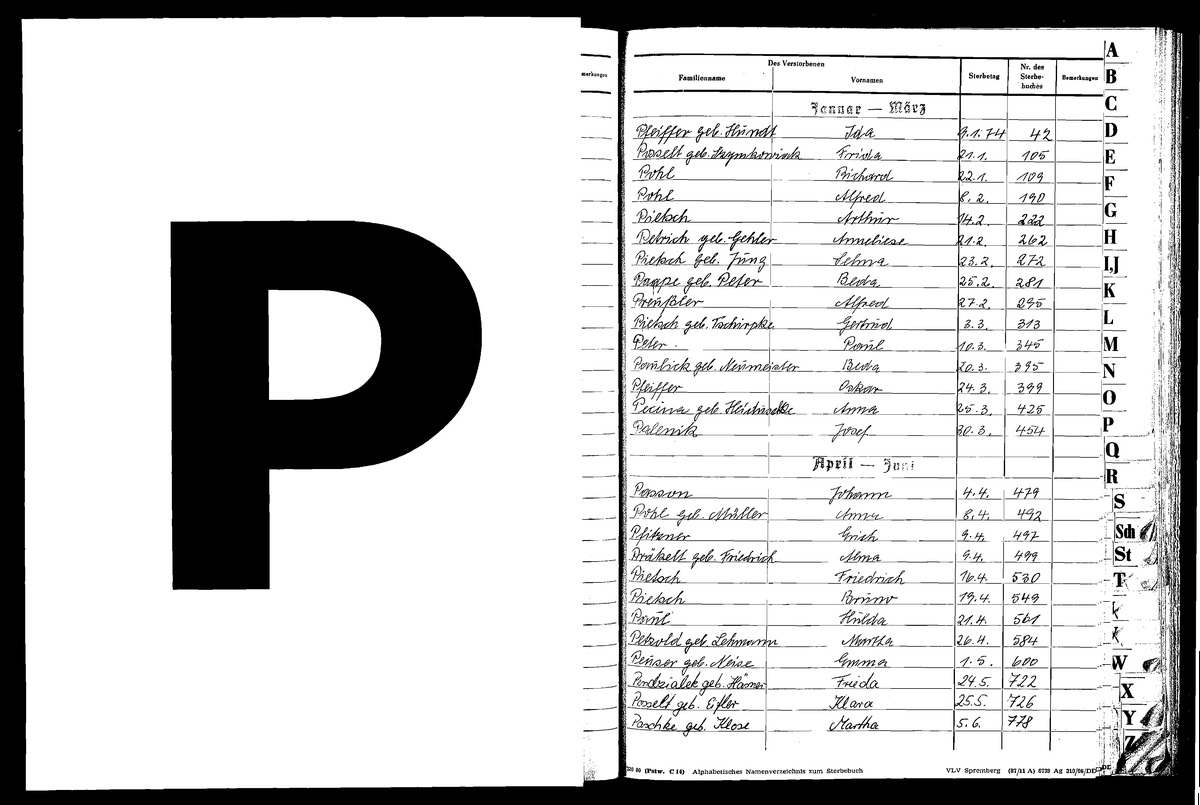 P
Bemerkungen
Des Verstorbenen
Familienname Vornamen Sterbetag Nr. des Sterbe-buches Bemerkungen
Januar — März
Pfeiffer geb. Hundt Ida 9.1.74 42
Posselt geb. Frida 21.1. 105
Pohl Richard 22.1. 109
Pohl Alfred 8.2. 190
Pietsch Arthur 14.2. 222
Petrich geb. Gehler Anneliese 21.2. 262
Pietsch geb. Jung Selma 23.2. 272
Pappe geb. Peter Beda 25.2. 281
Preußler Alfred 27.2. 295
Pietsch geb. Tschirpke Gertrud 3.3. 313
Peter Paul 10.3. 345
Paulick geb. Neumeister Beda 20.3. 395
Pfeiffer Oskar 24.3. 399
Pecina geb. Anna 25.3. 425
Palenik Josef 30.3. 454
April — Juni
Passon Johann 4.4. 479
Pohl geb. Müller Anna 8.4. 492
Pfitzner Erich 9.4. 497
Präkelt geb. Friedrich Alma 9.4. 499
Pietsch Friedrich 16.4. 530
Pietsch Bruno 19.4. 549
Paul Hulda 21.4. 561
Petzold geb. Lehmann Martha 26.4. 584
Peuser geb. Neise Emma 1.5. 600
Pendzialek geb. Frieda 24.5. 722
Posselt geb. Eifler Klara 25.5. 726
Paschke geb. Klose Martha 5.6. 778
(Pstw. C 14) Alphabetisches Namenverzeichnis zum Sterbebuch VLV Spremberg (87/11 A) 6739 Ag 310/66/DDR
A
B
C
D
E
F
G
H
I,J
K
L
M
N
O
P
Q
R
S
Sch
St
T
W
X
Y
Z